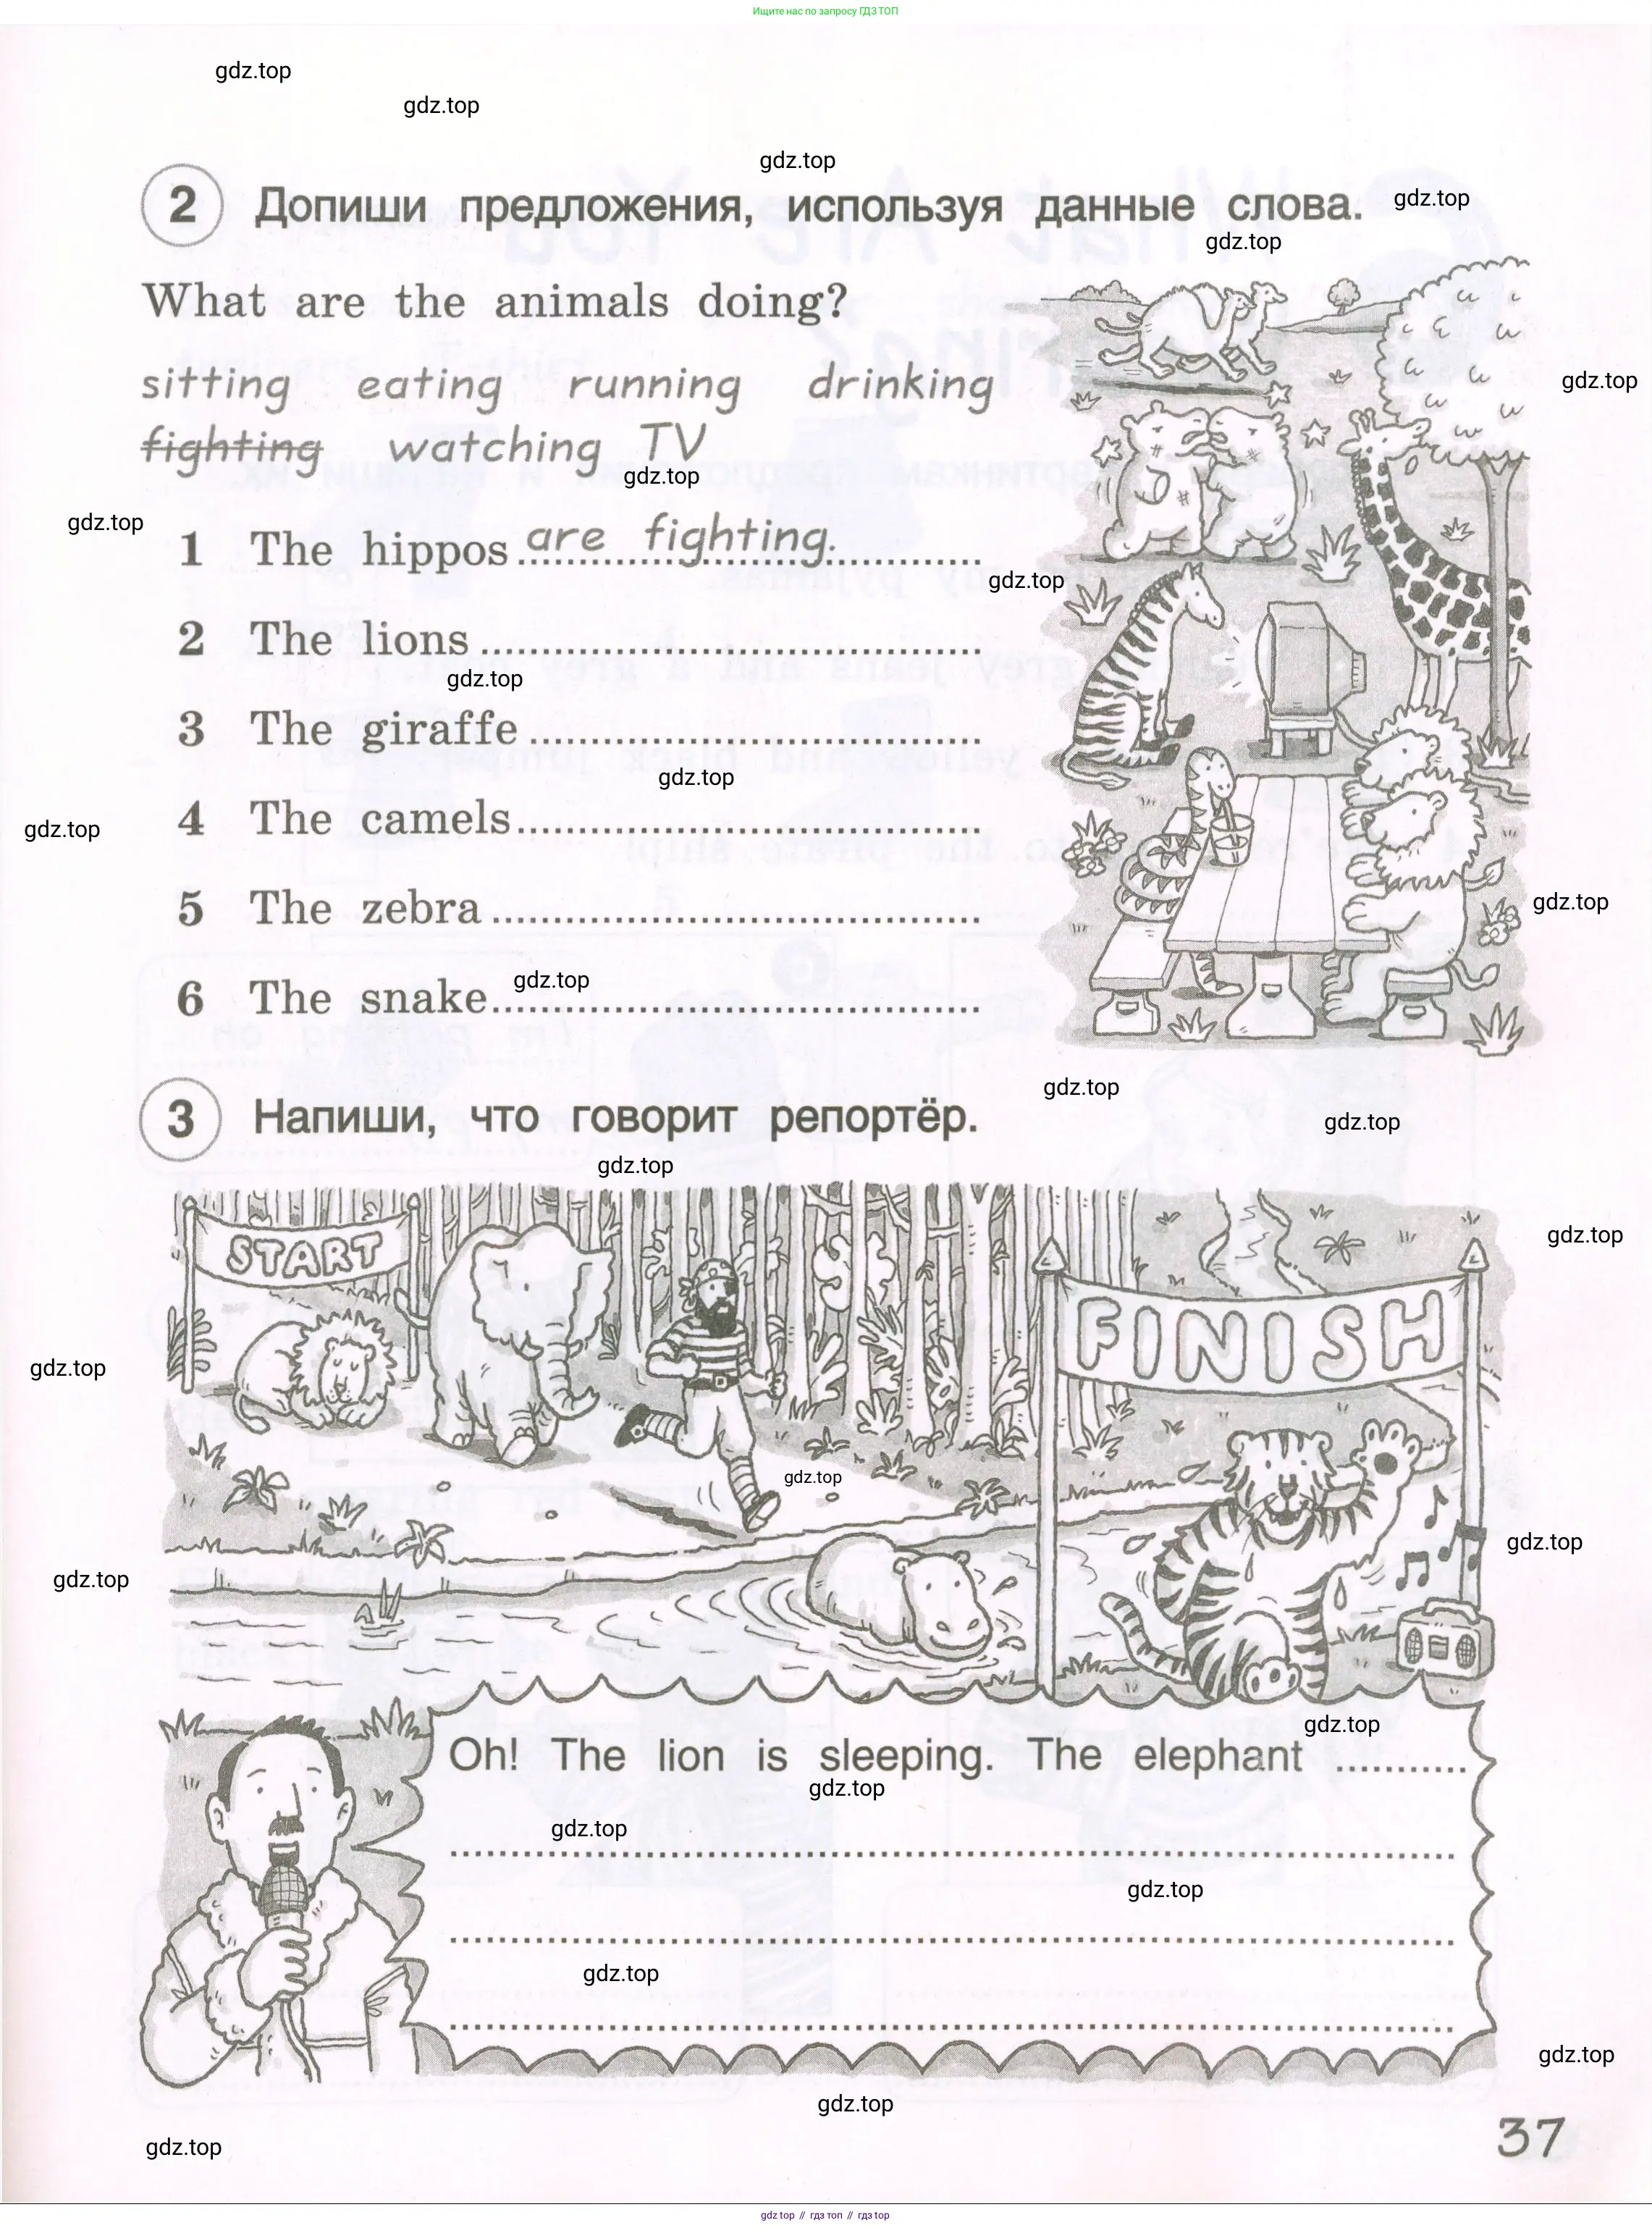 Ищите нас по запросу ГДЗ ТОП
gdz.top
gdz.top
gdz.top
gdz.top
2 Допиши предложения, используя данные слова.
gdz.top
What are the animals doing?
gdz.top
sitting eating running drinking
fighting watching TV
gdz.top
gdz.top
1 The hippos are fighting.
gdz.top
2 The lions
gdz.top
3 The giraffe
gdz.top
4 The camels
gdz.top
5 The zebra
gdz.top
6 The snake
gdz.top
gdz.top
3 Напиши, что говорит репортёр.
gdz.top
gdz.top
START
gdz.top
FINISH
gdz.top
gdz.top
gdz.top
gdz.top
gdz.top
Oh! The lion is sleeping. The elephant
gdz.top
gdz.top
gdz.top
gdz.top
gdz.top
gdz.top
37
gdz.top
gdz top // гдз топ // гдз top